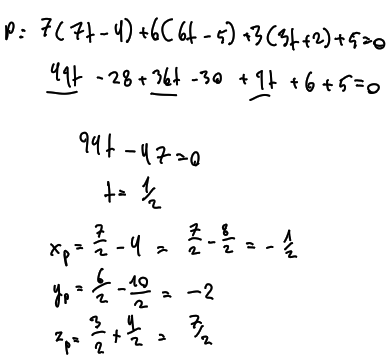 P: 7(7t-4)+6(6t-5)+3(3t+2)+5=0
49t -28+36t-30 +9t +6+5=0
94t-47=0
t= 1/2
x_p = 7/2 - 4 = 7/2 - 8/2 = - 1/2
y_p = 6/2 - 10/2 = -2
z_p = 3/2 + 4/2 = 7/2